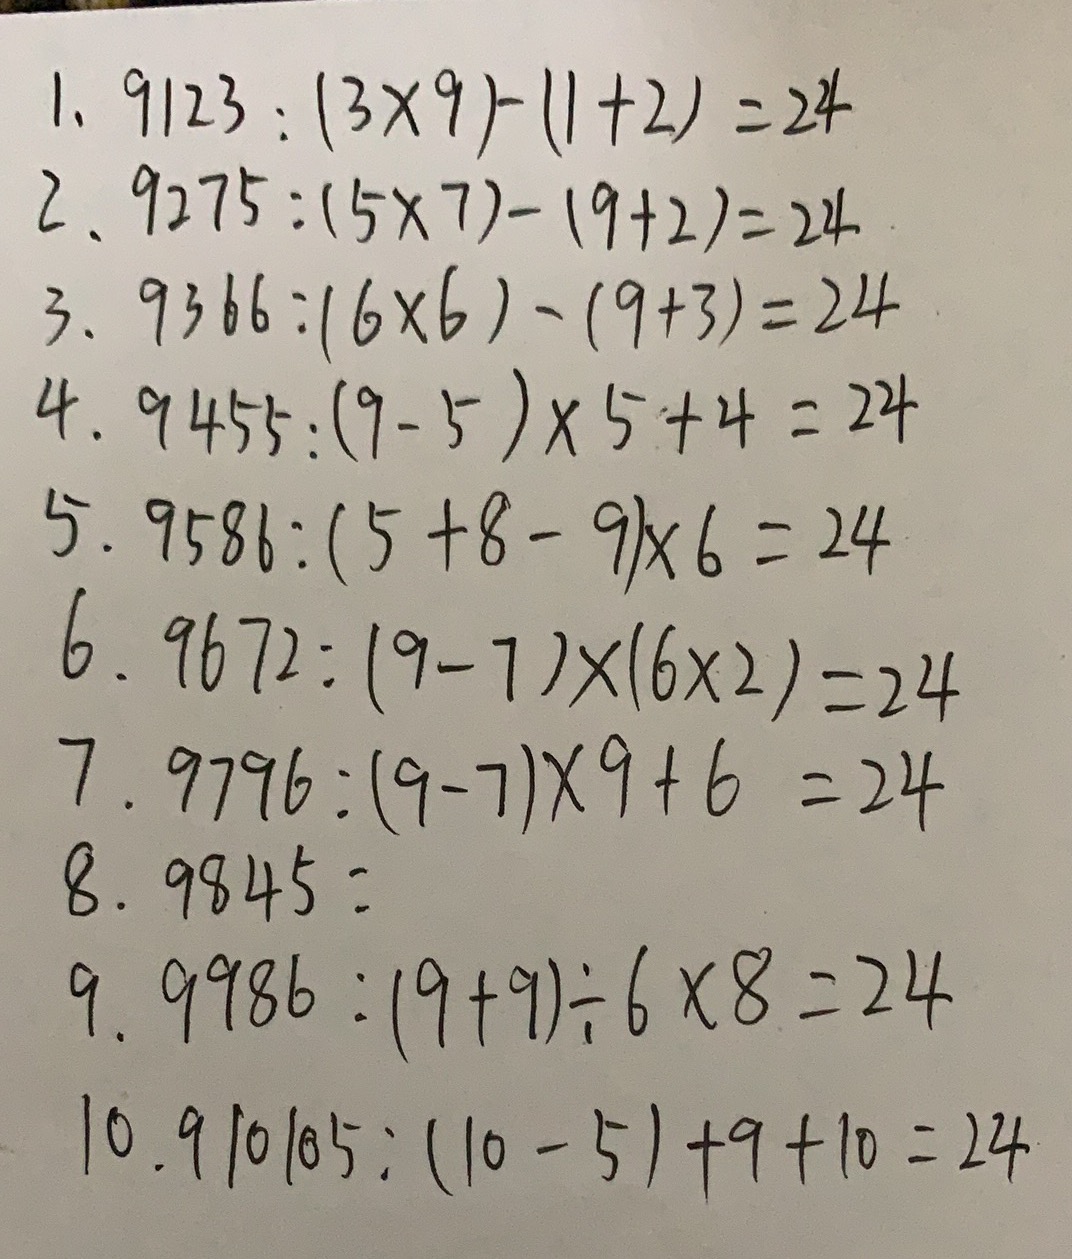 1. 9123:(3×9)-(1+2)=24
2. 9275:(5×7)-(9+2)=24
3. 9366:(6×6)-(9+3)=24
4. 9455:(9-5)×5+4=24
5. 9586:(5+8-9)×6=24
6. 9672:(9-7)×(6×2)=24
7. 9796:(9-7)×9+6=24
8. 9845:
9. 9986:(9+9)÷6×8=24
10. 910105:(10-5)+9+10=24